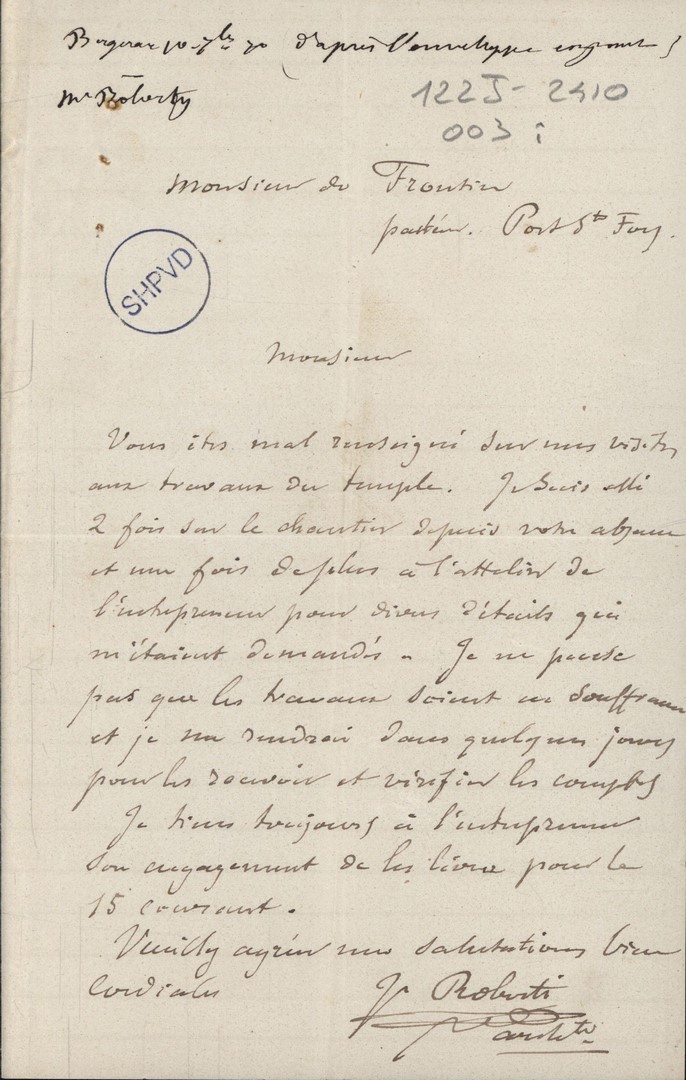 Bergerac 10 7bre 70 (d'après l'enveloppe
Mr Roberty
122J-2410
003 i
Monsieur de Frontin
pasteur. Port Ste Foy.
SHPVD
Monsieur
Vous êtes mal renseigné sur mes visites
aux travaux du temple. Je suis allé
2 fois sur le chantier depuis votre absence
et une fois de plus à l'attelier de
l'entrepreneur pour divers détails qui
m'étaient demandés. Je ne pense
pas que les travaux soient en souffrance
et je me rendrai dans quelques jours
pour les recevoir et vérifier les comptes
Je tiens toujours à l'entrepreneur
son engagement de les livrer pour le
15 courant.
Veuillez agréer mes salutations bien
cordiales
Roberti
archte